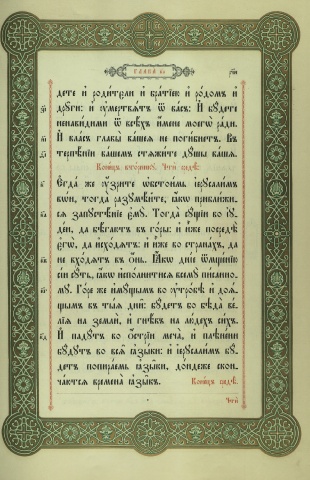 Глава к҃а
дете и҆ роди́тели и҆ бра́тїею и҆ ро́домъ и҆
дрꙋ́ги: и҆ ᲂу҆мертвѧ́тъ ѿ ва́съ: И҆ бꙋ́дете
ненави́дими ѿ всѣ́хъ и҆́мене моегѡ̀ ра́ди.
И҆ вла́съ главы̀ ва́шеѧ не поги́бнетъ. Въ
терпѣ́нїи ва́шемъ стѧжи́те дꙋ́шы ва́шѧ.
Коне́цъ вто́рникꙋ. Чтѝ въ
Е҆гда́ же ᲂу҆́зрите ѡ҆бстои́мь і҆ерⷭ҇али́мъ
вѡ́и, тогда̀ разꙋмѣ́йте, ꙗ҆́кѡ прибли́жи-
сѧ запꙋстѣ́нїе є҆мꙋ̀. Тогда̀ сꙋ́щїи во і҆ꙋ-
де́и, да бѣ́гаютъ въ го́ры: и҆ и҆̀же посредѣ̀
є҆гѡ̀, да и҆схо́дѧтъ: и҆ и҆̀же во страна́хъ, да
не вхо́дѧтъ въ ѻ҆́нь. Ꙗ҆́кѡ дні́е ѿмще́нїю
сі́и сꙋ́ть, ꙗ҆́кѡ и҆спо́лнитисѧ всемꙋ̀ пи́санно-
мꙋ. Го́ре же и҆мꙋ́щымъ во ᲂу҆тро́бѣ и҆ доѧ́-
щымъ въ ты̑ѧ дни̑: бꙋ́детъ бо бѣда̀ ве́-
лїѧ на землѝ, и҆ гнѣ́въ на лю́дехъ си́хъ.
И҆ падꙋ́тъ во ѻ҆стрїѝ меча̀, и҆ плѣне́ни
бꙋ́дꙋтъ во всѧ̑ ꙗ҆зы́ки: и҆ і҆ерⷭ҇али́мъ бꙋ́-
детъ попира́емь ꙗ҆зы́ки, до́ндеже скон-
ча́ютсѧ времена̀ ꙗ҆зы̑къ. Коне́цъ
Чтѝ